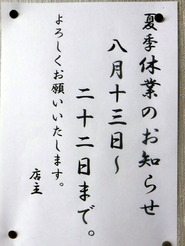 夏季休業のお知らせ
八月十三日〜
二十二日まで。
よろしくお願いいたします。
店主